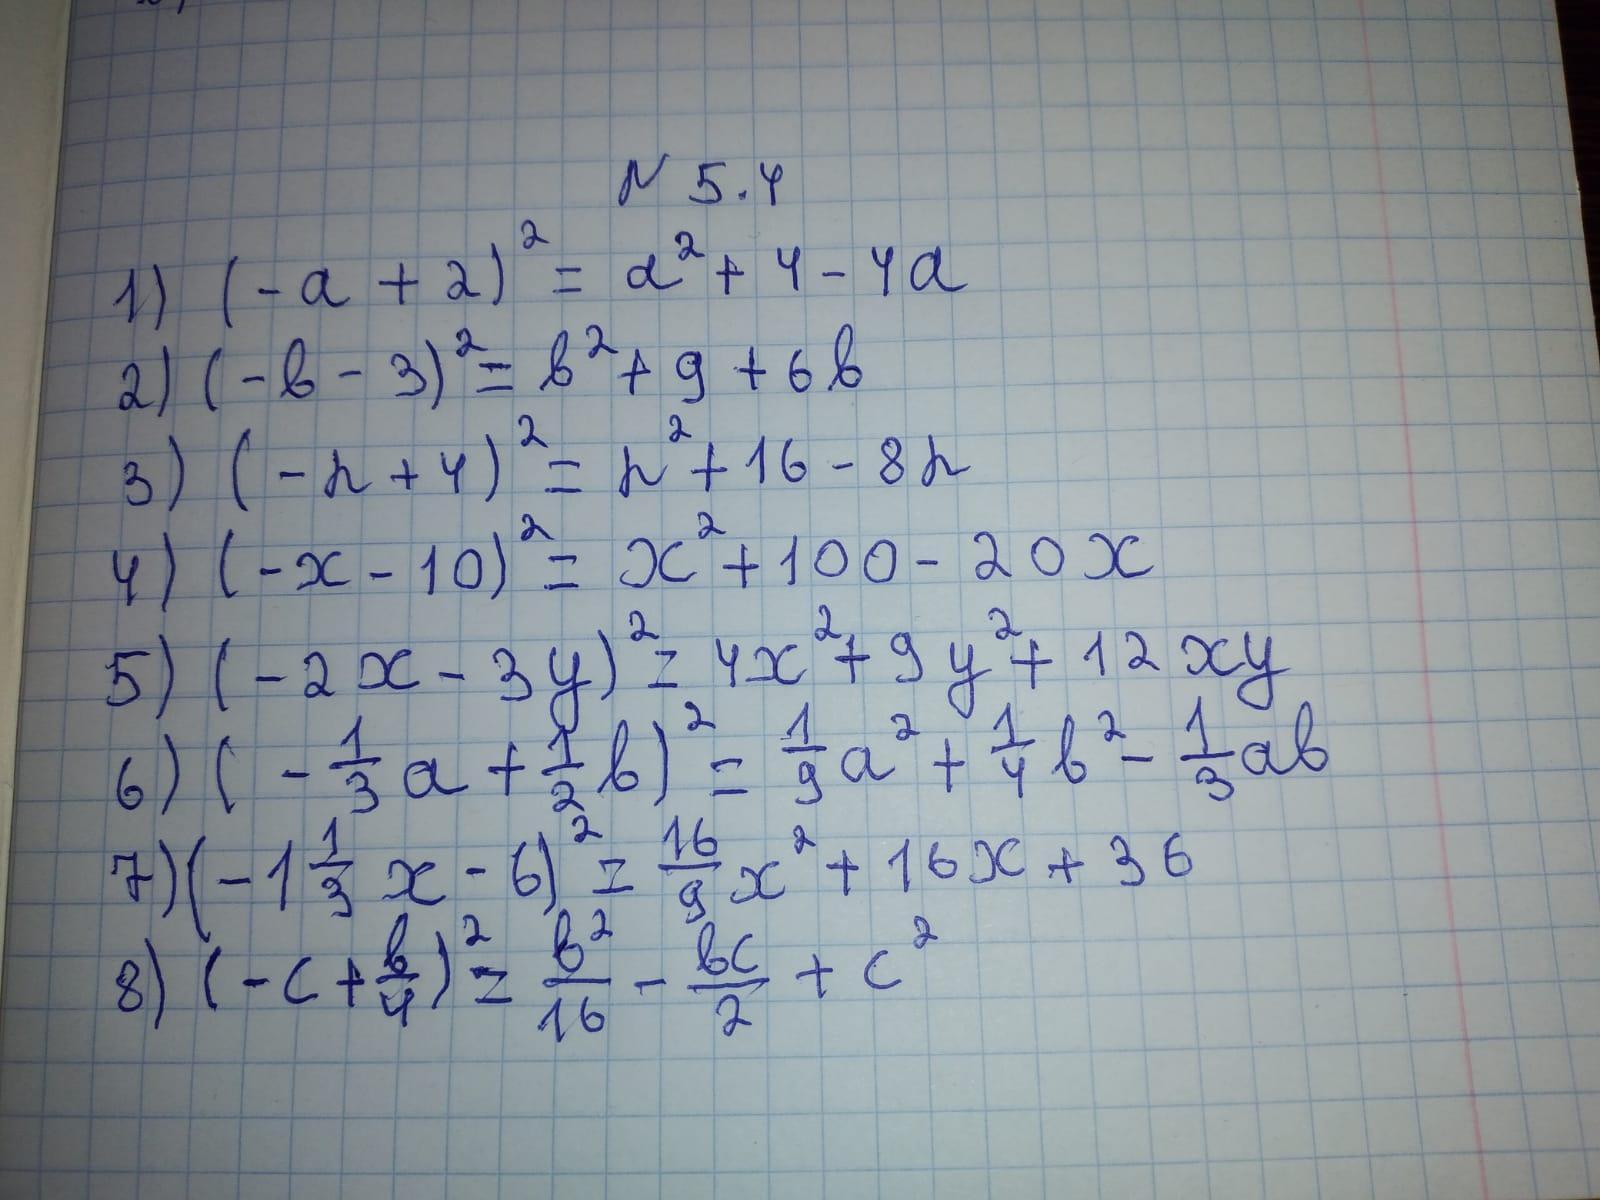 N 5.4
1) (-a + 2)² = a² + 4 - 4a
2) (-b - 3)² = b² + 9 + 6b
3) (-n + 4)² = n² + 16 - 8n
4) (-x - 10)² = x² + 100 - 20x
5) (-2x - 3y)² = 4x² + 9y² + 12xy
6) (-1/3 a + 1/2 b)² = 1/9 a² + 1/4 b² - 1/3 ab
7) (-1 1/3 x - 6)² = 16/9 x² + 16x + 36
8) (-c + b/4)² = b²/16 - bc/2 + c²